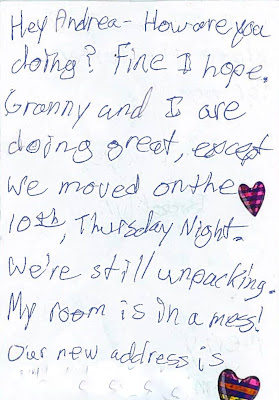 Hey Andrea- How are you
doing? Fine I hope.
Granny and I are
doing great, except
We moved on the
10th, Thursday Night.
We're still unpacking.
My room is in a mess!
Our new address is